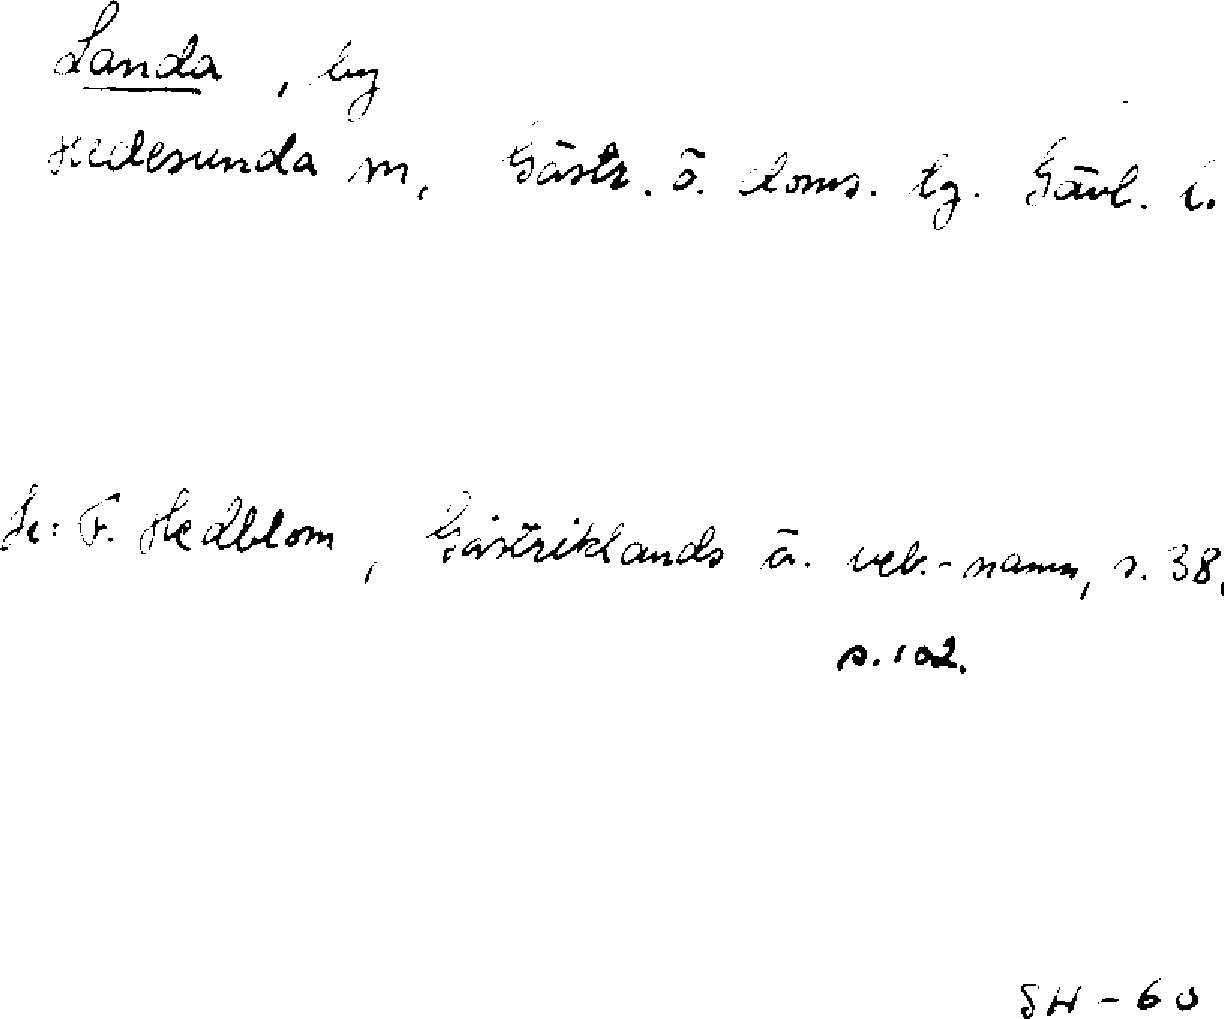 Landa, by
Hedesunda sn, Gästr. ö. doms. tg. Gävl. l.
Se: F. Hedblom, Gästriklands ä. beb.-namn, s. 38,
s. 102.
SH - 60